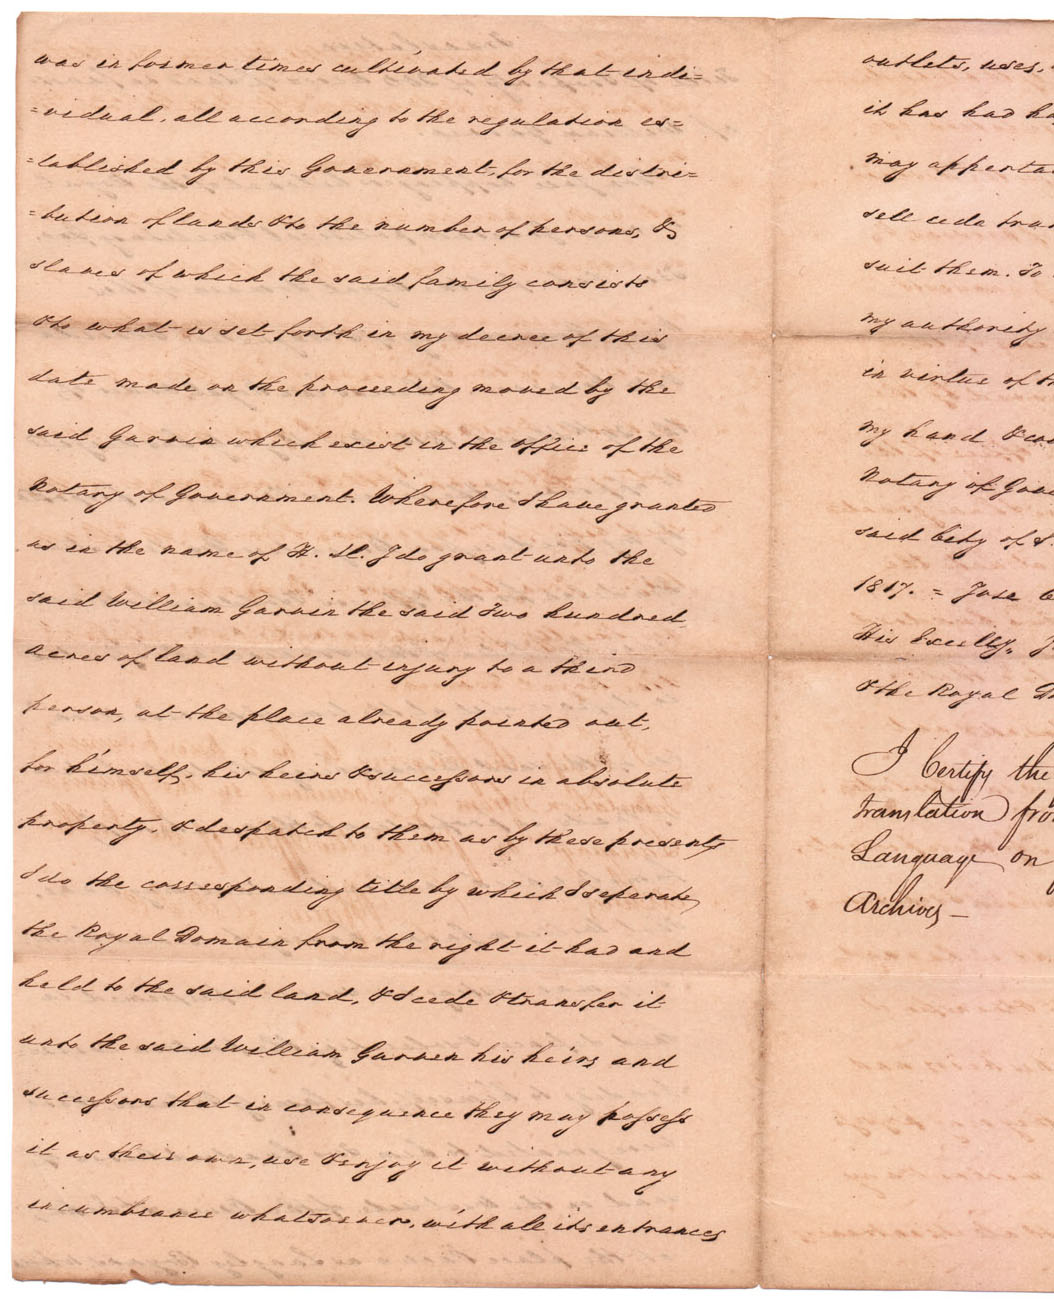 was in former times cultivated by that indi=
=vidual, all according to the regulation es=
=tablished by this Government, for the distri=
=bution of lands & to the number of persons, &
slaves of which the said family consists
& to what is set forth in my decree of this
date made on the proceeding moved by the
said Garvin which exist in the office of the
Notary of Government. Wherefore I have granted
as in the name of H. M. I do grant unto the
said William Garvin the said Two hundred
acres of land without injury to a third
person, at the place already pointed out,
for himself, his heirs & successors in absolute
property, & despatch to them as by these presents
I do the corresponding title by which I seperate
the Royal Domain from the right it had and
held to the said land, & I cede & transfer it
unto the said William Garven his heirs and
successors that in consequence they may possess
it as their own, use & enjoy it without any
incumbrance whatsoever, with all its entrances
outlets, uses,
it has had
may apperta
sell cede tran
suit them. To
my authority
in virtue of th
my hand & cou
Notary of Gove
said City of S
1817. = Jose
His Excelly,
& the Royal D
I Certify the
translation fro
Language on
Archives —